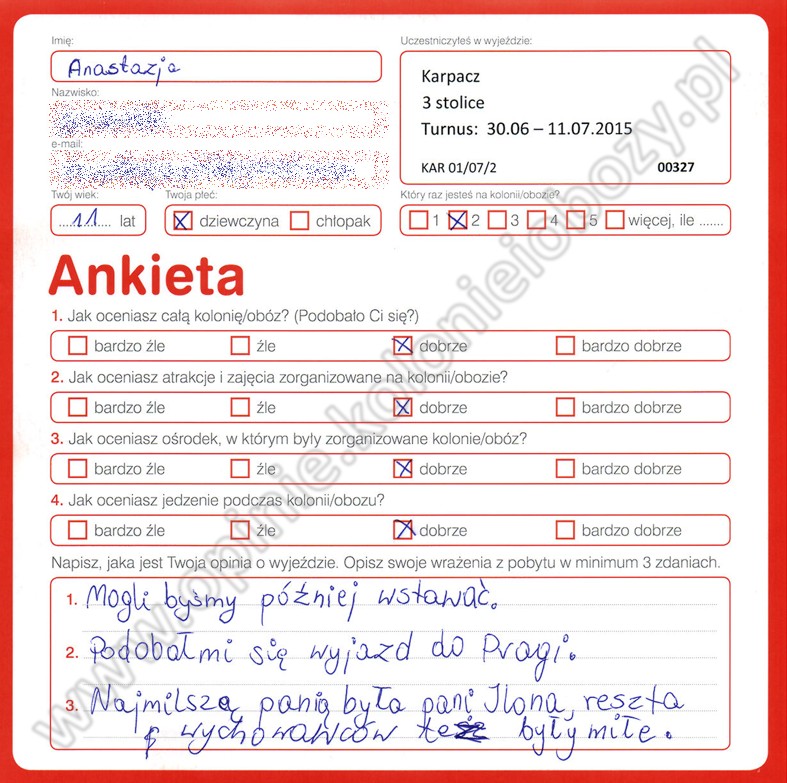 Imię:
Uczestniczyłeś w wyjeździe:
Anastazja
Karpacz
3 stolice
Turnus: 30.06 – 11.07.2015
KAR 01/07/2 00327
Nazwisko:
e-mail:
Twój wiek: Twoja płeć: Który raz jesteś na kolonii/obozie?
....11.... lat dziewczyna chłopak 1 2 3 4 5 więcej, ile .......
Ankieta
1. Jak oceniasz całą kolonię/obóz? (Podobało Ci się?)
bardzo źle źle dobrze bardzo dobrze
2. Jak oceniasz atrakcje i zajęcia zorganizowane na kolonii/obozie?
bardzo źle źle dobrze bardzo dobrze
3. Jak oceniasz ośrodek, w którym były zorganizowane kolonie/obóz?
bardzo źle źle dobrze bardzo dobrze
4. Jak oceniasz jedzenie podczas kolonii/obozu?
bardzo źle źle dobrze bardzo dobrze
Napisz, jaka jest Twoja opinia o wyjeździe. Opisz swoje wrażenia z pobytu w minimum 3 zdaniach.
1. Mogli byśmy później wstawać.
2. Podobał mi się wyjazd do Pragi.
3. Najmilszą panią była pani Ilona, reszta
wychowawców też były miłe.
www.opinie.kolonieiobozy.pl